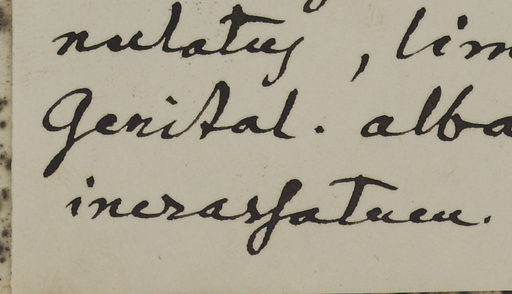 nulatus, lim
Genital. alba
incrassatum.